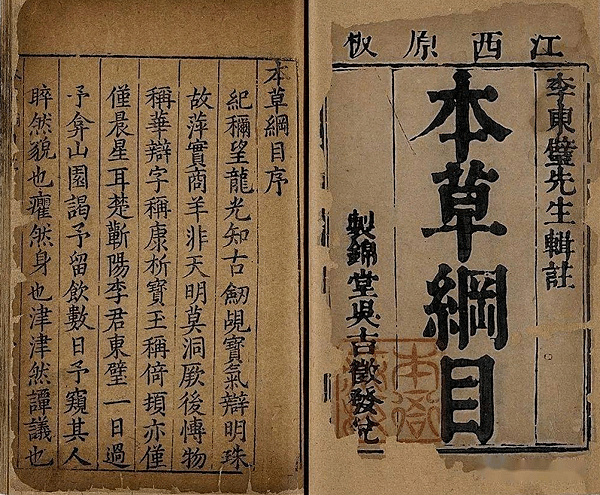 江西原板
李東璧先生輯註
本草綱目
製錦堂吳古徵發兌
本草綱目序
紀穪望龍光知古劒覘寶氣辯明珠
故萍實商羊非天明莫洞厥後愽物
稱華辯字稱康析寶王稱倚頓亦僅
僅晨星耳楚蘄陽李君東璧一日過
予弇山園謁予留飲數日予窺其人
睟然貌也癯然身也津津然譚議也